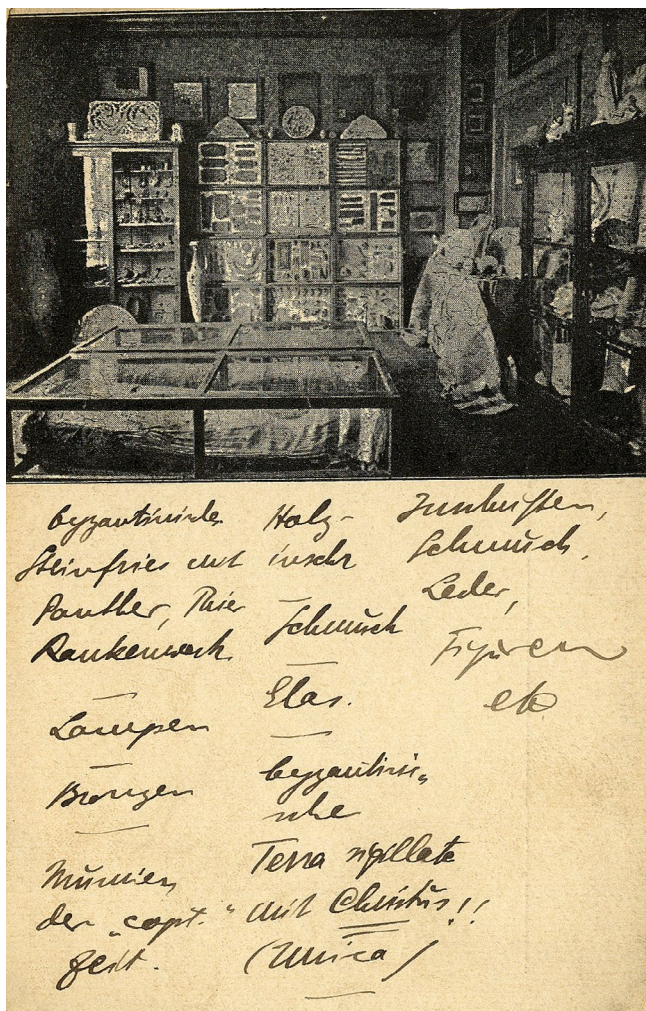 byzantinische
Steinfries mit
Panther, Thier
Rankenwerk
Lampen
Bronzen
Mumien
der „copt.“
Zeit.
Holz-
inschr
Schmuck
Glas.
byzantini„
sche
Terra sigillata
mit Christus!!
(Unica)
Inschriften,
Schmuck,
Leder,
Figuren
etc